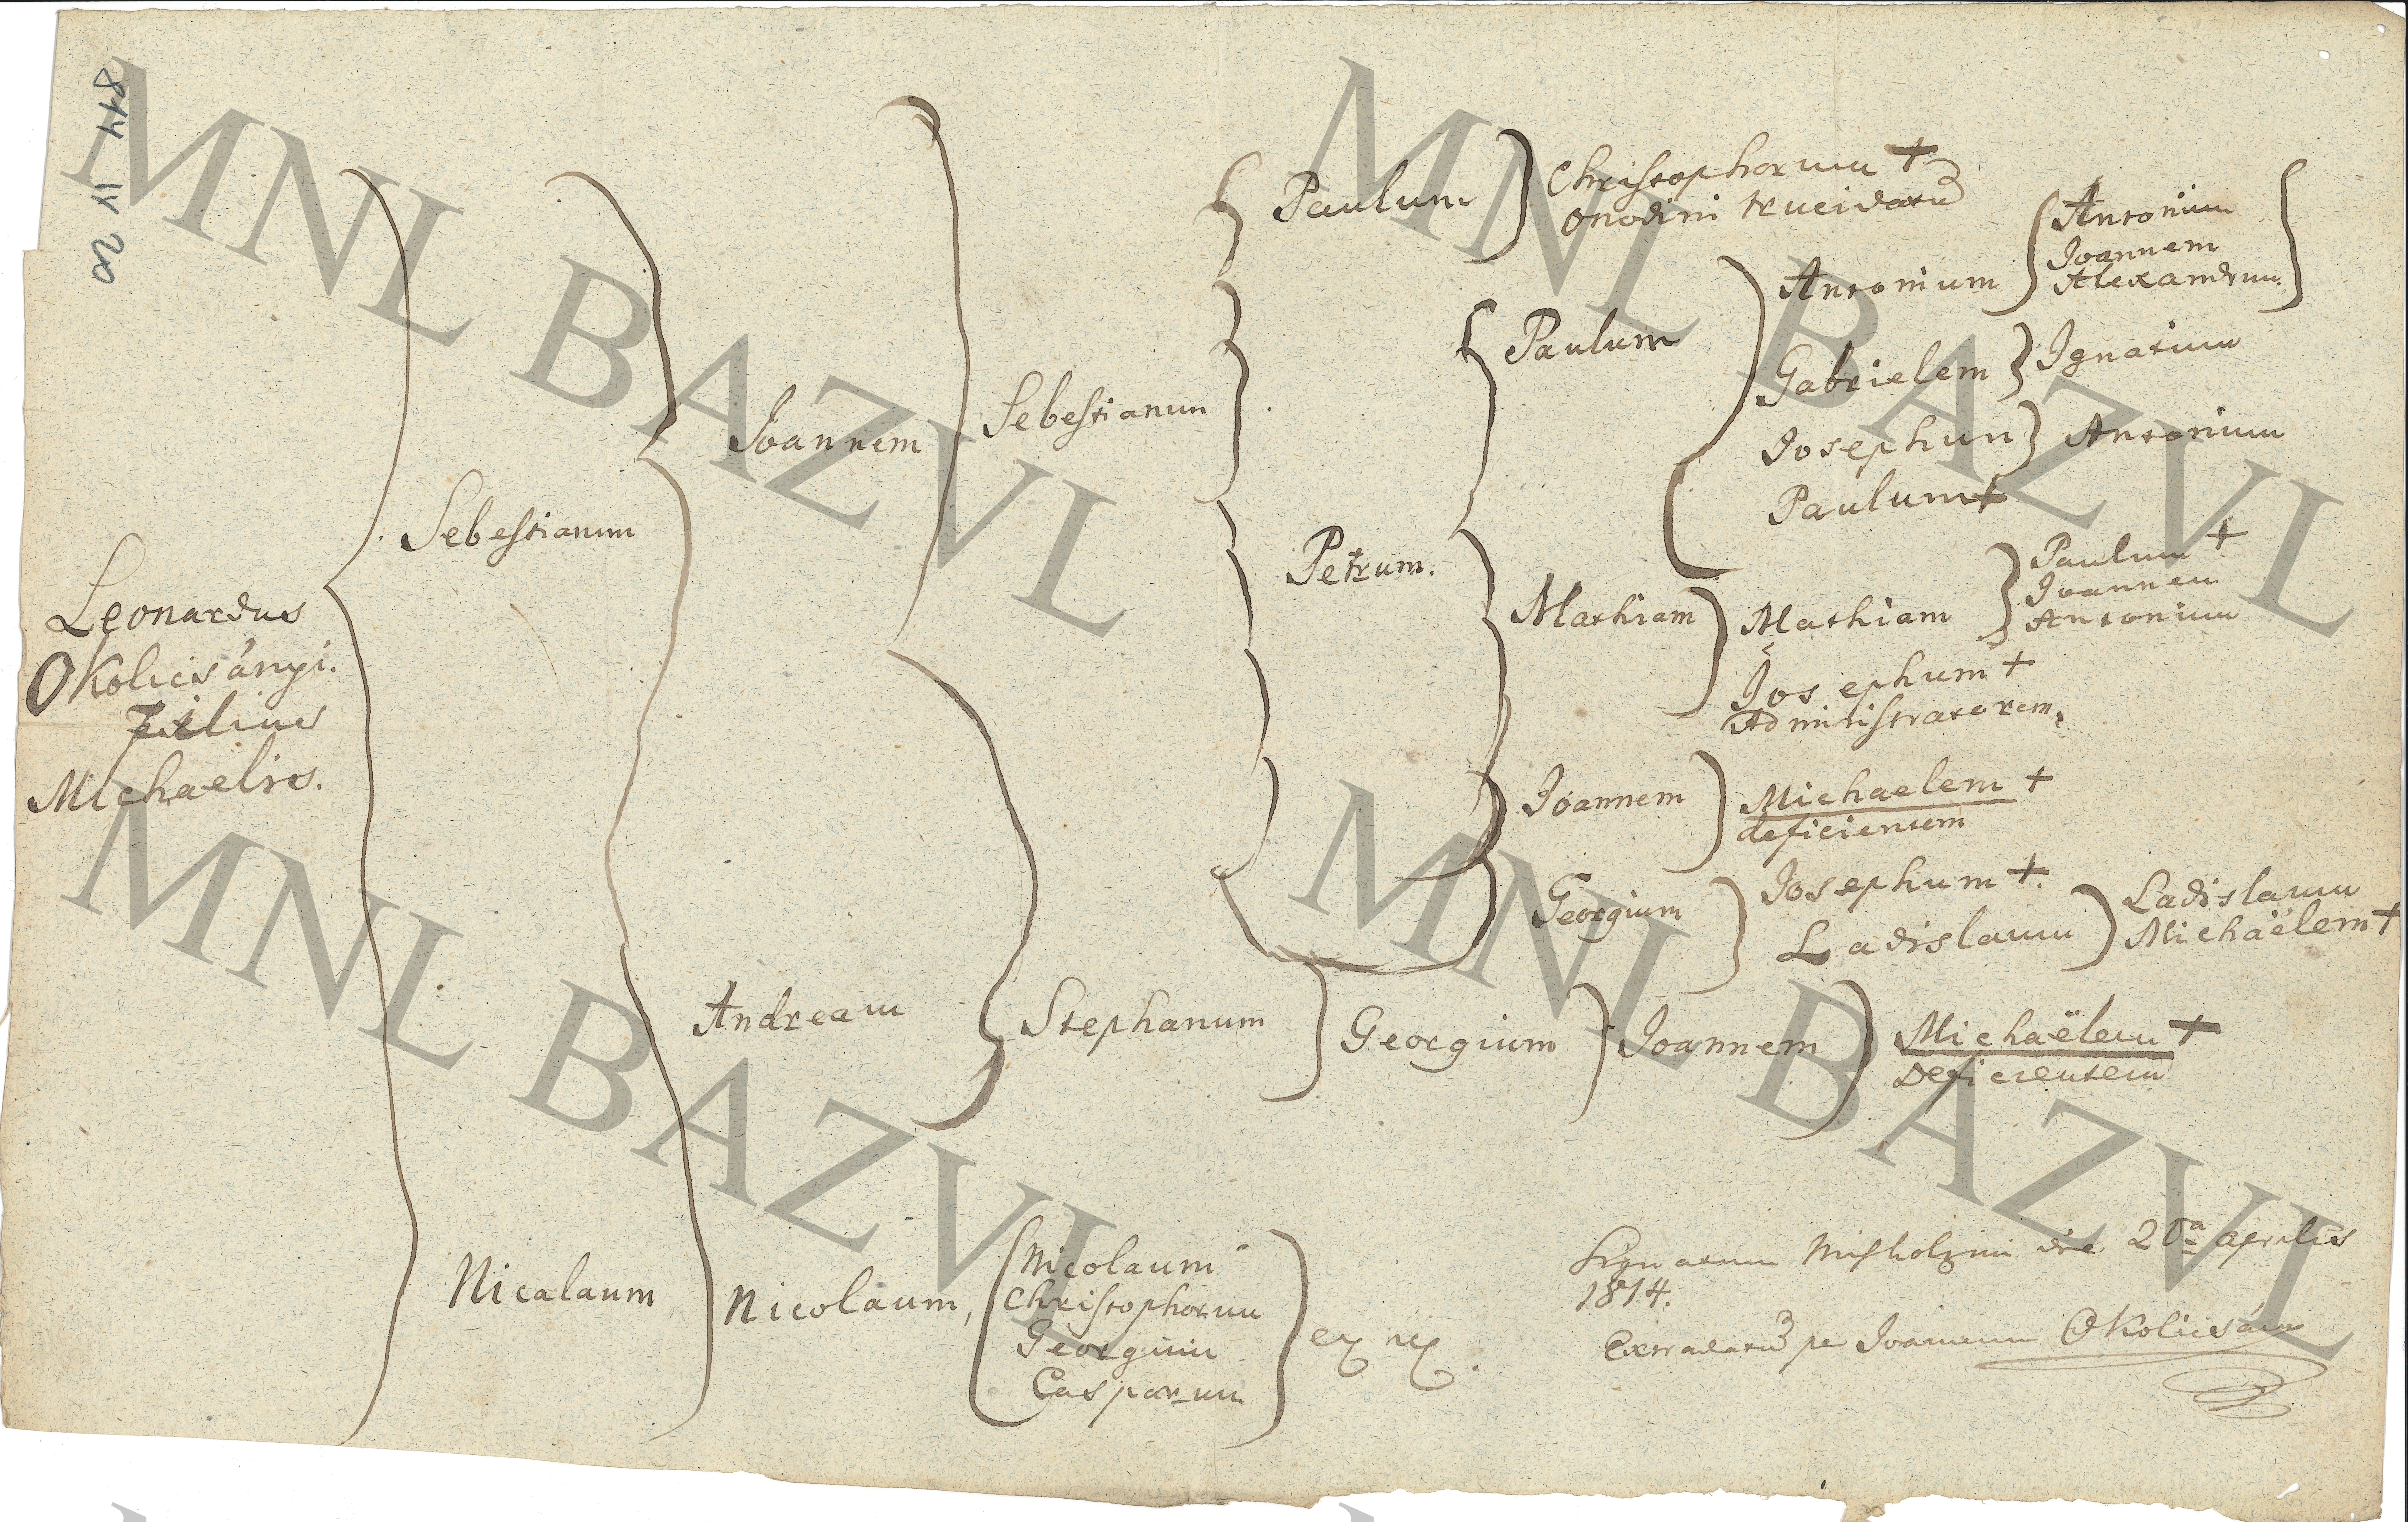 844 IV 20
Leonardus
Okolicsányi.
Filius
Michaelis.
Sebestianum
Nicalaum
Joannem
Andream
Nicolaum,
Sebestianum
Stephanum
Nicolaum
Christophorum
Georgium
Casparum
Paulum
Petrum.
Georgium
Christophorum +
Onodini trucidatu
Paulum
Mathiam
Joannem
Georgium
Joannem
Antonium
Gabrielem
Josephum
Paulum +
Mathiam
Josephum +
Administratorem.
Michaelem +
deficientem
Josephum +.
Ladislaum
Michaëlem +
Deficientem
Antonium
Joannem
Alexandrum.
Ignatium
Antonium
Paulum +
Joannem
Antonium
Ladislaum
Michaëlem +
Signatum Mishólczini die 20a aprilis
1814.
Extradatu pe Joannem Okolicsány
MNL BAZVL
MNL BAZVL
MNL BAZVL
MNL BAZVL